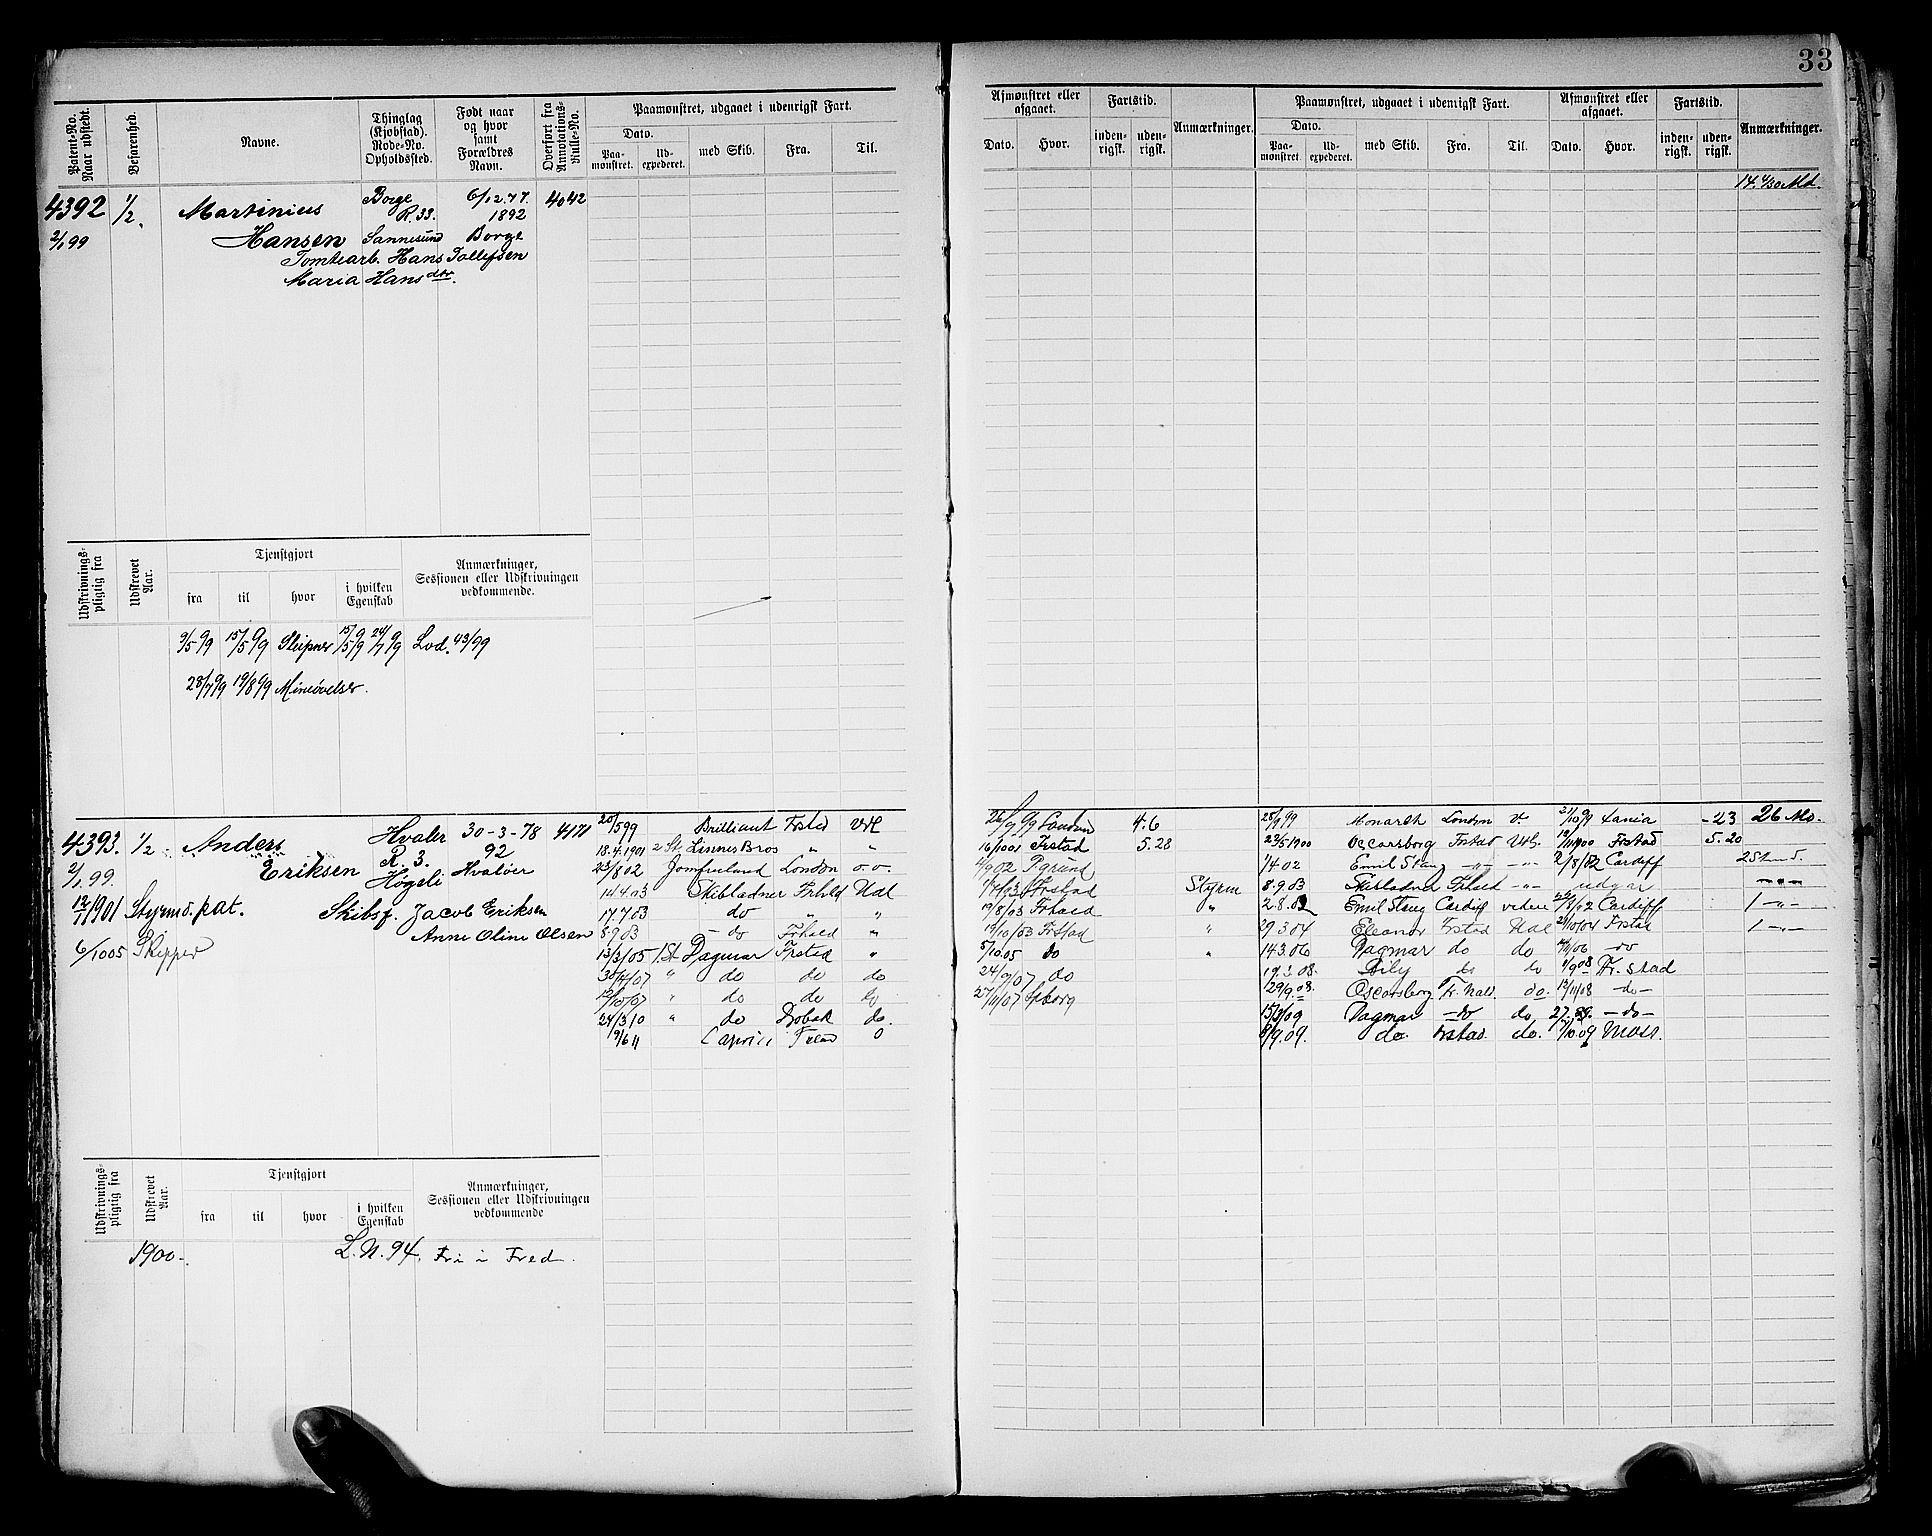 33
Patent-No. Naar udstedt.
Befarenhed.
Navne.
Thinglag (Kjøbstad). Rode-No. Opholdssted.
Født naar og hvor samt Forældres Navn.
Overført fra Annotations-Rulle-No.
Paamønstret, udgaaet i udenrigsk Fart.
Dato.
Paa-mønstret.
Ud-expederet.
med Skib.
Fra.
Til.
Afmønstret eller afgaaet.
Dato.
Hvor.
Fartstid.
inden-rigsk.
uden-rigsk.
Anmærkninger.
Paamønstret, udgaaet i udenrigsk Fart.
Dato.
Paa-mønstret.
Ud-expederet.
med Skib.
Fra.
Til.
Afmønstret eller afgaaet.
Dato.
Hvor.
Fartstid.
inden-rigsk.
uden-rigsk.
Anmærkninger.
4392 1/2. Martinius Borge 6/12.77 4042
R.33. 1892
2/1 99 Hansen Sannesund Borge
Tomtearb. Hans Tollefsen
Maria Hansdtr.
Udskrivnings-pligtig fra
Udskrevet Aar.
Tjenstgjort
fra
til
hvor
i hvilken Egenskab
Anmærkninger, Sessionen eller Udskrivningen vedkommende.
9/5 99 15/5 99 Sleipner 15/5 99 24/7 99 Lod. 43/99
28/7 99 19/8 99 Mineøvelser.
4393. 1/2 Anders Hvaler 30-3-78 4171
R. 3. 92
2/1 99. Eriksen Høgeli Hvaløer
12/1 1901 Styrmd. pat. Skibsf. Jacob Eriksen
Anne Oline Olsen
6/10 05 Skipper
20/5 99 Brilliant Frstad Udl
18.4.1901 2 St. Linnes Bros " "
23/8 02 Jomfruland London o.o.
14.4.03 Skibladner Frhld Udl
17.7.03 do " "
8.9.03 - do Frhald "
13/3/05 1 St Dagmar Frstad "
30/4/07 " do do do
19/10/07 " do do do
24/3/10 " do Drøbak do.
19/6 11 Caprice
26/9 99 London 4.6
16/10 01 Frstad 5.28
2/9 02 Pgrund
Frstad Styrm
19/8/03 Frhald "
19/10/03 Frstad "
5/10.05 do "
24/9/07 do
27/11/07 Spborg
28/9 99 Monarch London 21/10 99 -23 26 Md.
23/5 1900 Oscarsborg Frstad Udl. Frstad 5.20
1/4-02 Emil Stang -"- -"- 2/8/02 Cardiff
8.9.03 Skibladner Frhald -"- udgår
2.8.02 Emil Stang Cardiff videre Cardiff 1 -"-
29.3.04 Eleanor Frstad Udl 21/10/04 Frstad 1 -"-
14.3.06 Dagmar do do -do
17.3.08. do do 1/9 08 Fr.stad
29/9.08. Oscarsborg Fr. hald. do. 13/11/08 -do-
15/3/09 Dagmar -do do -do-
8/9.09. do. Frstad. do. 1/10.09 Moss.
Udskrivnings-pligtig fra
Udskrevet Aar.
Tjenstgjort
fra
til
hvor
i hvilken Egenskab
Anmærkninger, Sessionen eller Udskrivningen vedkommende
1900. L.N. 94. Fri i Fred.